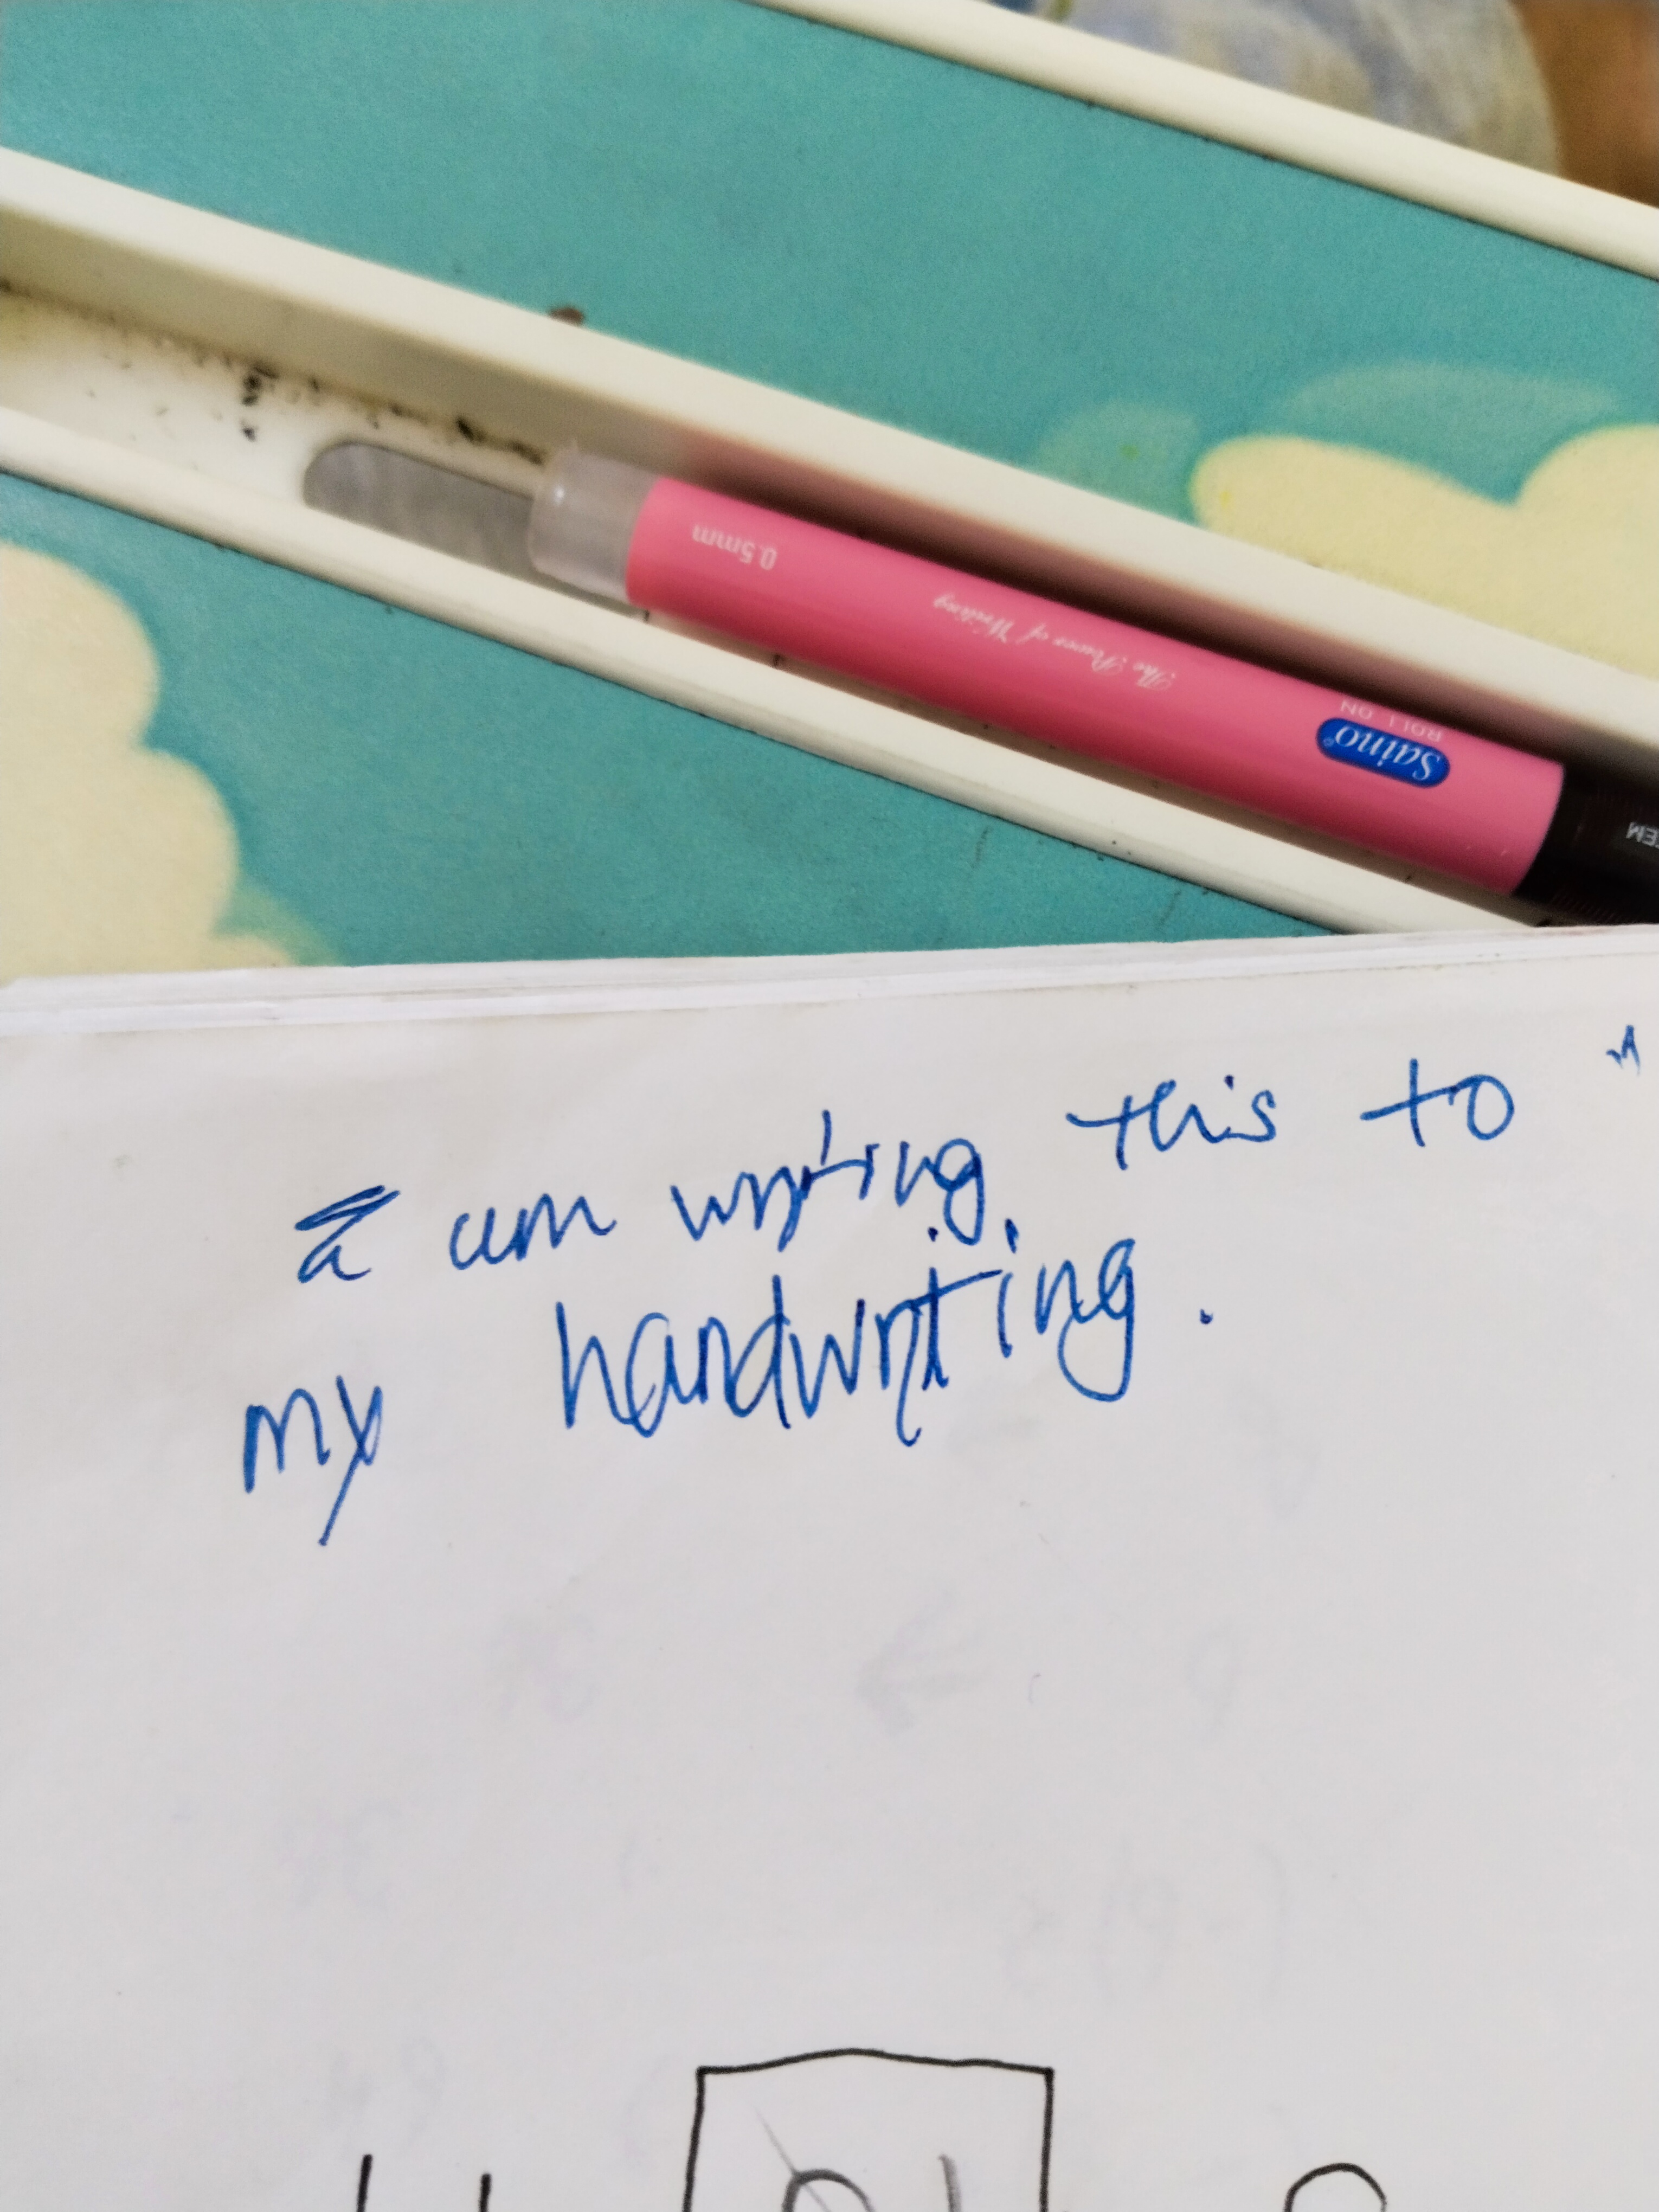 0.5mm
The Power of Writing
Saino
ROLL ON
I am writing this to
my handwriting.